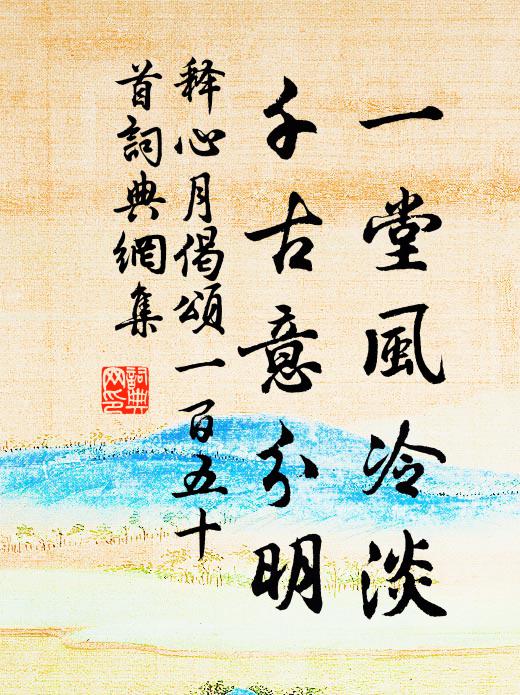 一堂風冷淡
千古意分明
释心月偈頌一百五十
首詞典網集
詞典
网印